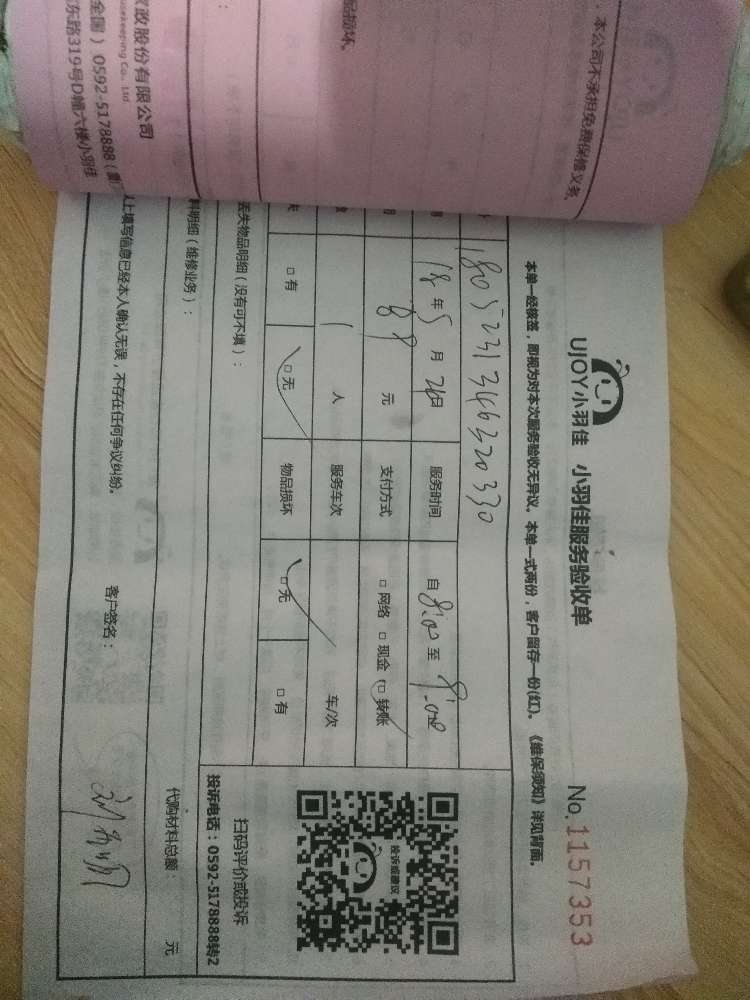 本公司不承担免费保修义务。
损坏。
家政股份有限公司
usekeeping Co., Ltd
全国）0592-5178888（
东路319号D幢六楼小羽佳
UJOY小羽佳 小羽佳服务验收单 No.1157353
本单一经核签，即视为对本次服务验收无异议。本单一式两份，客户留存一份(红)。《维保须知》详见背面。
1805231346320330
18年5月26日 服务时间 自8:00至9:00
89元 支付方式 □网络 □现金 □转账
1人 服务车次 车/次
□有 □无 物品损坏 □无 □有
投诉或建议
扫码评价或投诉
投诉电话：0592-5178888转2
丢失物品明细（没有可不填）：
料明细（维修业务）： 代购材料总额： 元
以上填写信息已经本人确认无误，不存在任何争议纠纷。 客户签名：